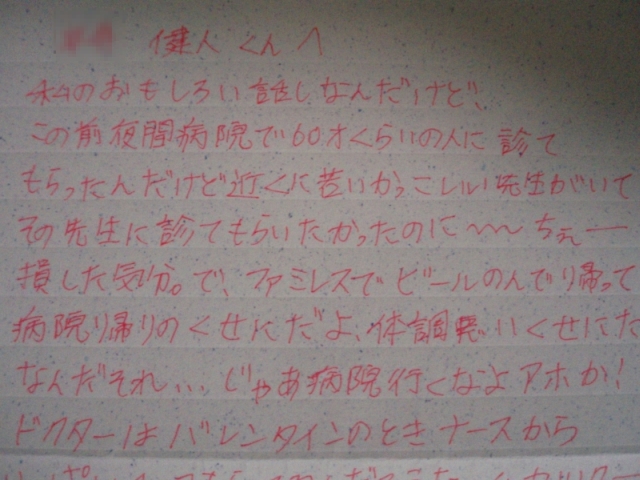 健人くんへ
私のおもしろい話しなんだけど、
この前夜間病院で60才くらいの人に診て
もらったんだけど近くに若いかっこいい先生がいて
その先生に診てもらいたかったのに〜〜ちぇー
損した気分。で、ファミレスでビールのんでり帰って
病院り帰りのくせにだよ、体調悪いくせにだ
なんだそれ、、、じゃあ病院行くなよアホか!
ドクターはバレンタインのときナースから